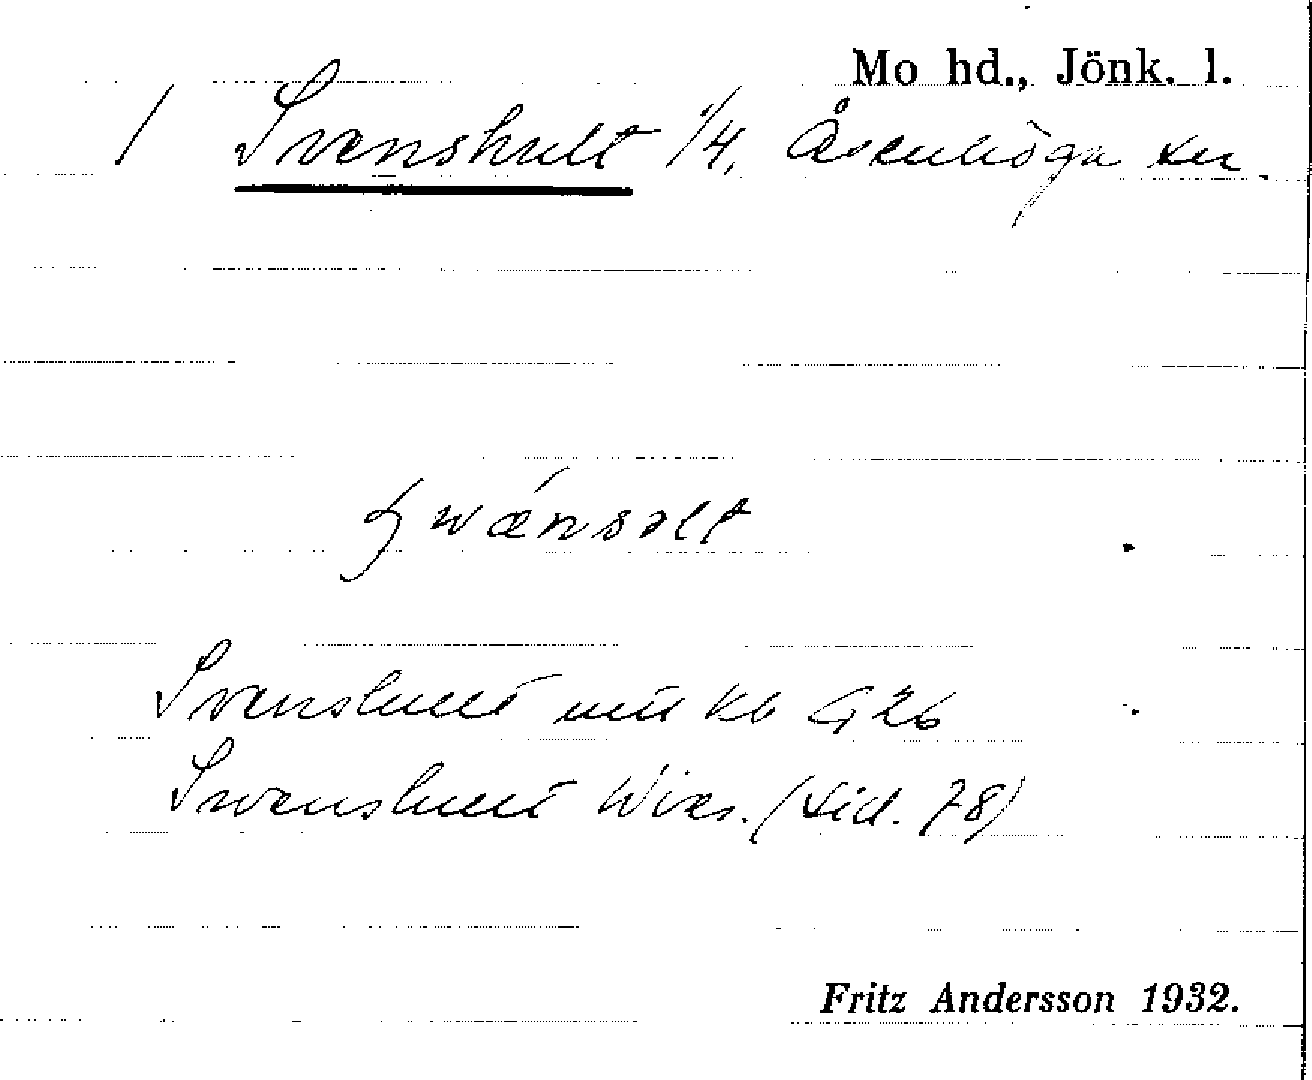 Mo hd., Jönk. l.
/ Svenshult 1/4, Åsenhöga sn.
Svenshult Kb
Swenshult Wies. (sid. 78)
Fritz Andersson 1932.